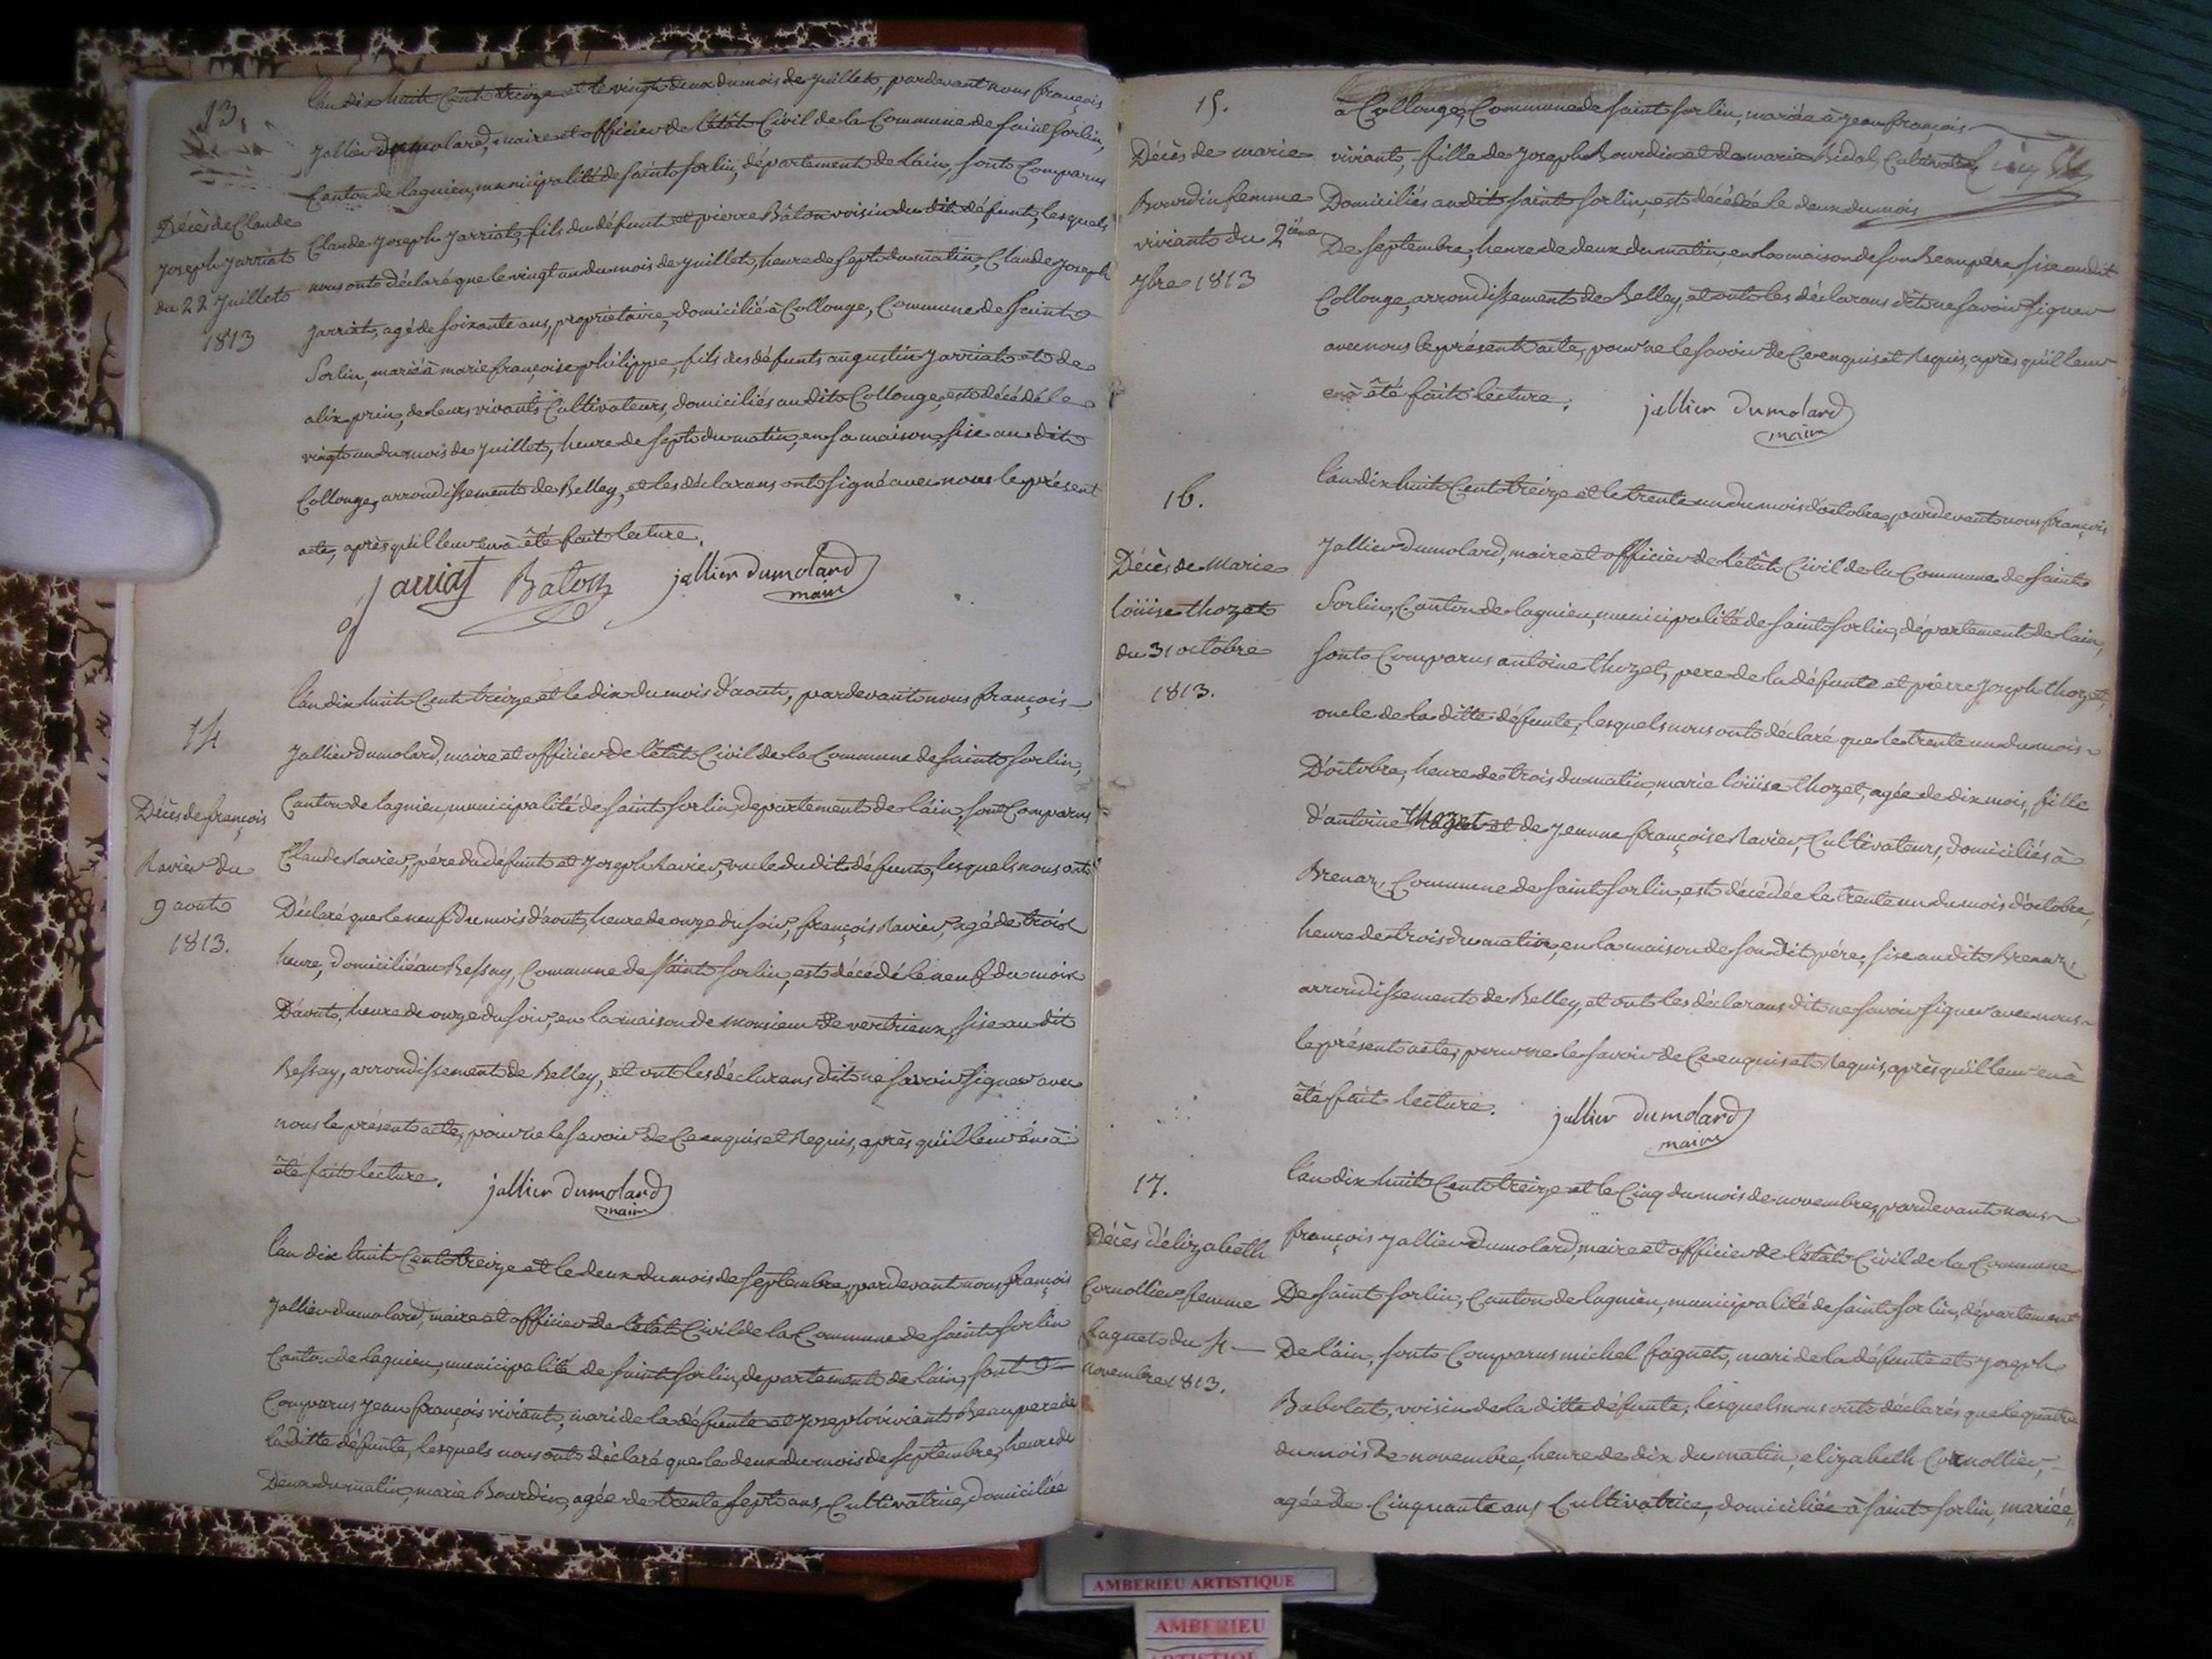 13.
Décès de Claude
Joseph Jarriat
du 22 Juillet
1813
L'an dix huit Cent treize et le vingt deux du mois de Juillet, pardevant nous françois
Jallier dumolard, maire et officier de l'état Civil de la Commune de Saint Sorlin,
Canton de lagnieu, municipalité de Saint Sorlin, département de l'ain, sont Comparus
Claude Joseph Jarriat, fils du défunt et pierre Bâton voisin du dit défunt, lesquels
nous ont déclaré que le vingt un du mois de Juillet, heure de sept du matin, Claude Joseph
Jarriat, agé de soixante ans, propriétaire, domicilié à Collonge, Commune de Saint
Sorlin, marié à marie françoise philippe, fils des défunts augustin Jarriat et de
alix prin, de leurs vivants Cultivateurs, domiciliés au dit Collonge, est décédé le
vingt un du mois de Juillet, heure de sept du matin, en sa maison sise au dit
Collonge, arrondissement de Belley, et les déclarans ont signé avec nous le présent
acte, après qu'il leur en à été fait lecture.
Jarriat Baton jallier dumolard
maire
14
Décès de françois
Ravier du
9 aout
1813.
L'an dix huit Cent treize et le dix du mois d'aout, pardevant nous françois
Jallier dumolard, maire et officier de l'état Civil de la Commune de Saint Sorlin,
Canton de lagnieu, municipalité de Saint Sorlin, departement de l'ain, sont Comparus
Claude Ravier, père du défunt et Joseph Ravier, oncle du dit défunt, lesquels nous ont
Déclaré que le neuf du mois d'aout, heure de onze du soir, françois Ravier, agé de trois
heure, domicilié au Bessay, Commune de Saint Sorlin, est décédé le neuf du mois
D'aout, heure de onze du soir, en la maison de monsieur De vertrieux, sise au dit
Bessay, arrondissement de Belley, et ont les déclarans dit ne savoir signer avec
nous le présent acte, pour ne le savoir de Ce enquis et Requis, après qu'il leur en à
été fait lecture. jallier dumolard
maire
L'an dix huit Cent treize et le deux du mois de Septembre, pardevant nous françois
Jallier dumolard, maire et officier de l'état Civil de la Commune de Saint Sorlin
Canton de lagnieu, municipalité de Saint Sorlin, departement de l'ain, sont
Comparus Jean françois viviant, mari de la défunte et Joseph viviant Beaupere de
la ditte défunte, lesquels nous ont déclaré que le deux du mois de Septembre, heure de
Deux du matin, marie Bourdin, agée de trente sept ans, Cultivatrice, domiciliée
15.
Décès de marie
Bourdin femme
viviant du 2ième
7bre 1813
à Collonge, Commune de Saint Sorlin, mariée à Jean françois
viviant, fille de Joseph Bourdin et de marie Bidal, Cultivateurs
Domiciliés au dit Saint Sorlin, est décédée le deux du mois
De Septembre, heure de deux du matin, en la maison de son Beaupère sise au dit
Collonge, arrondissement de Belley, et ont les déclarans dit ne savoir signer
avec nous le présent acte, pour ne le savoir de Ce enquis et Requis, après qu'il leur
en à été fait lecture. jallier dumolard
maire
16.
Décès de Marie
loüise thozet
du 31 octobre
1813.
L'an dix huit Cent treize et le trente un du mois d'octobre, pardevant nous françois
Jallier dumolard, maire et officier de l'état Civil de la Commune de Saint
Sorlin, Canton de lagnieu, municipalité de Saint Sorlin, département de l'ain,
sont Comparus antoine thozet, pere de la défunte et pierre Joseph thozet,
oncle de la ditte défunte, lesquels nous ont déclaré que le trente un du mois
D'octobre, heure de trois du matin, marie loüise thozet, agée de dix mois, fille
d'antoine thozet et de Jeanne françoise Ravier, Cultivateurs, domiciliés à
Brenaz, Commune de Saint Sorlin, est décédée le trente un du mois d'octobre,
heure de trois du matin, en la maison de son dit père, sise au dit Brenaz,
arrondissement de Belley, et ont les déclarans dit ne savoir signer avec nous
le présent acte, pour ne le savoir de Ce enquis et Requis, après qu'il leur en à
été fait lecture. jallier dumolard
maire
17.
Décès d'élizabeth
Cornollier femme
faguet du 4
novembre 1813.
L'an dix huit Cent treize et le Cinq du mois de novembre, pardevant nous
françois Jallier dumolard, maire et officier de l'état Civil de la Commune
De Saint Sorlin, Canton de lagnieu, municipalité de Saint Sorlin, département
De l'ain, sont Comparus michel faguet, mari de la défunte et Joseph
Babolat, voisin de la ditte défunte, lesquels nous ont déclarés que le quatre
du mois de novembre, heure de dix du matin, elizabeth Cornollier,
agée de Cinquante ans Cultivatrice, domiciliée à Saint Sorlin, mariée,
AMBERIEU ARTISTIQUE
AMBERIEU
ARTISTIQUE